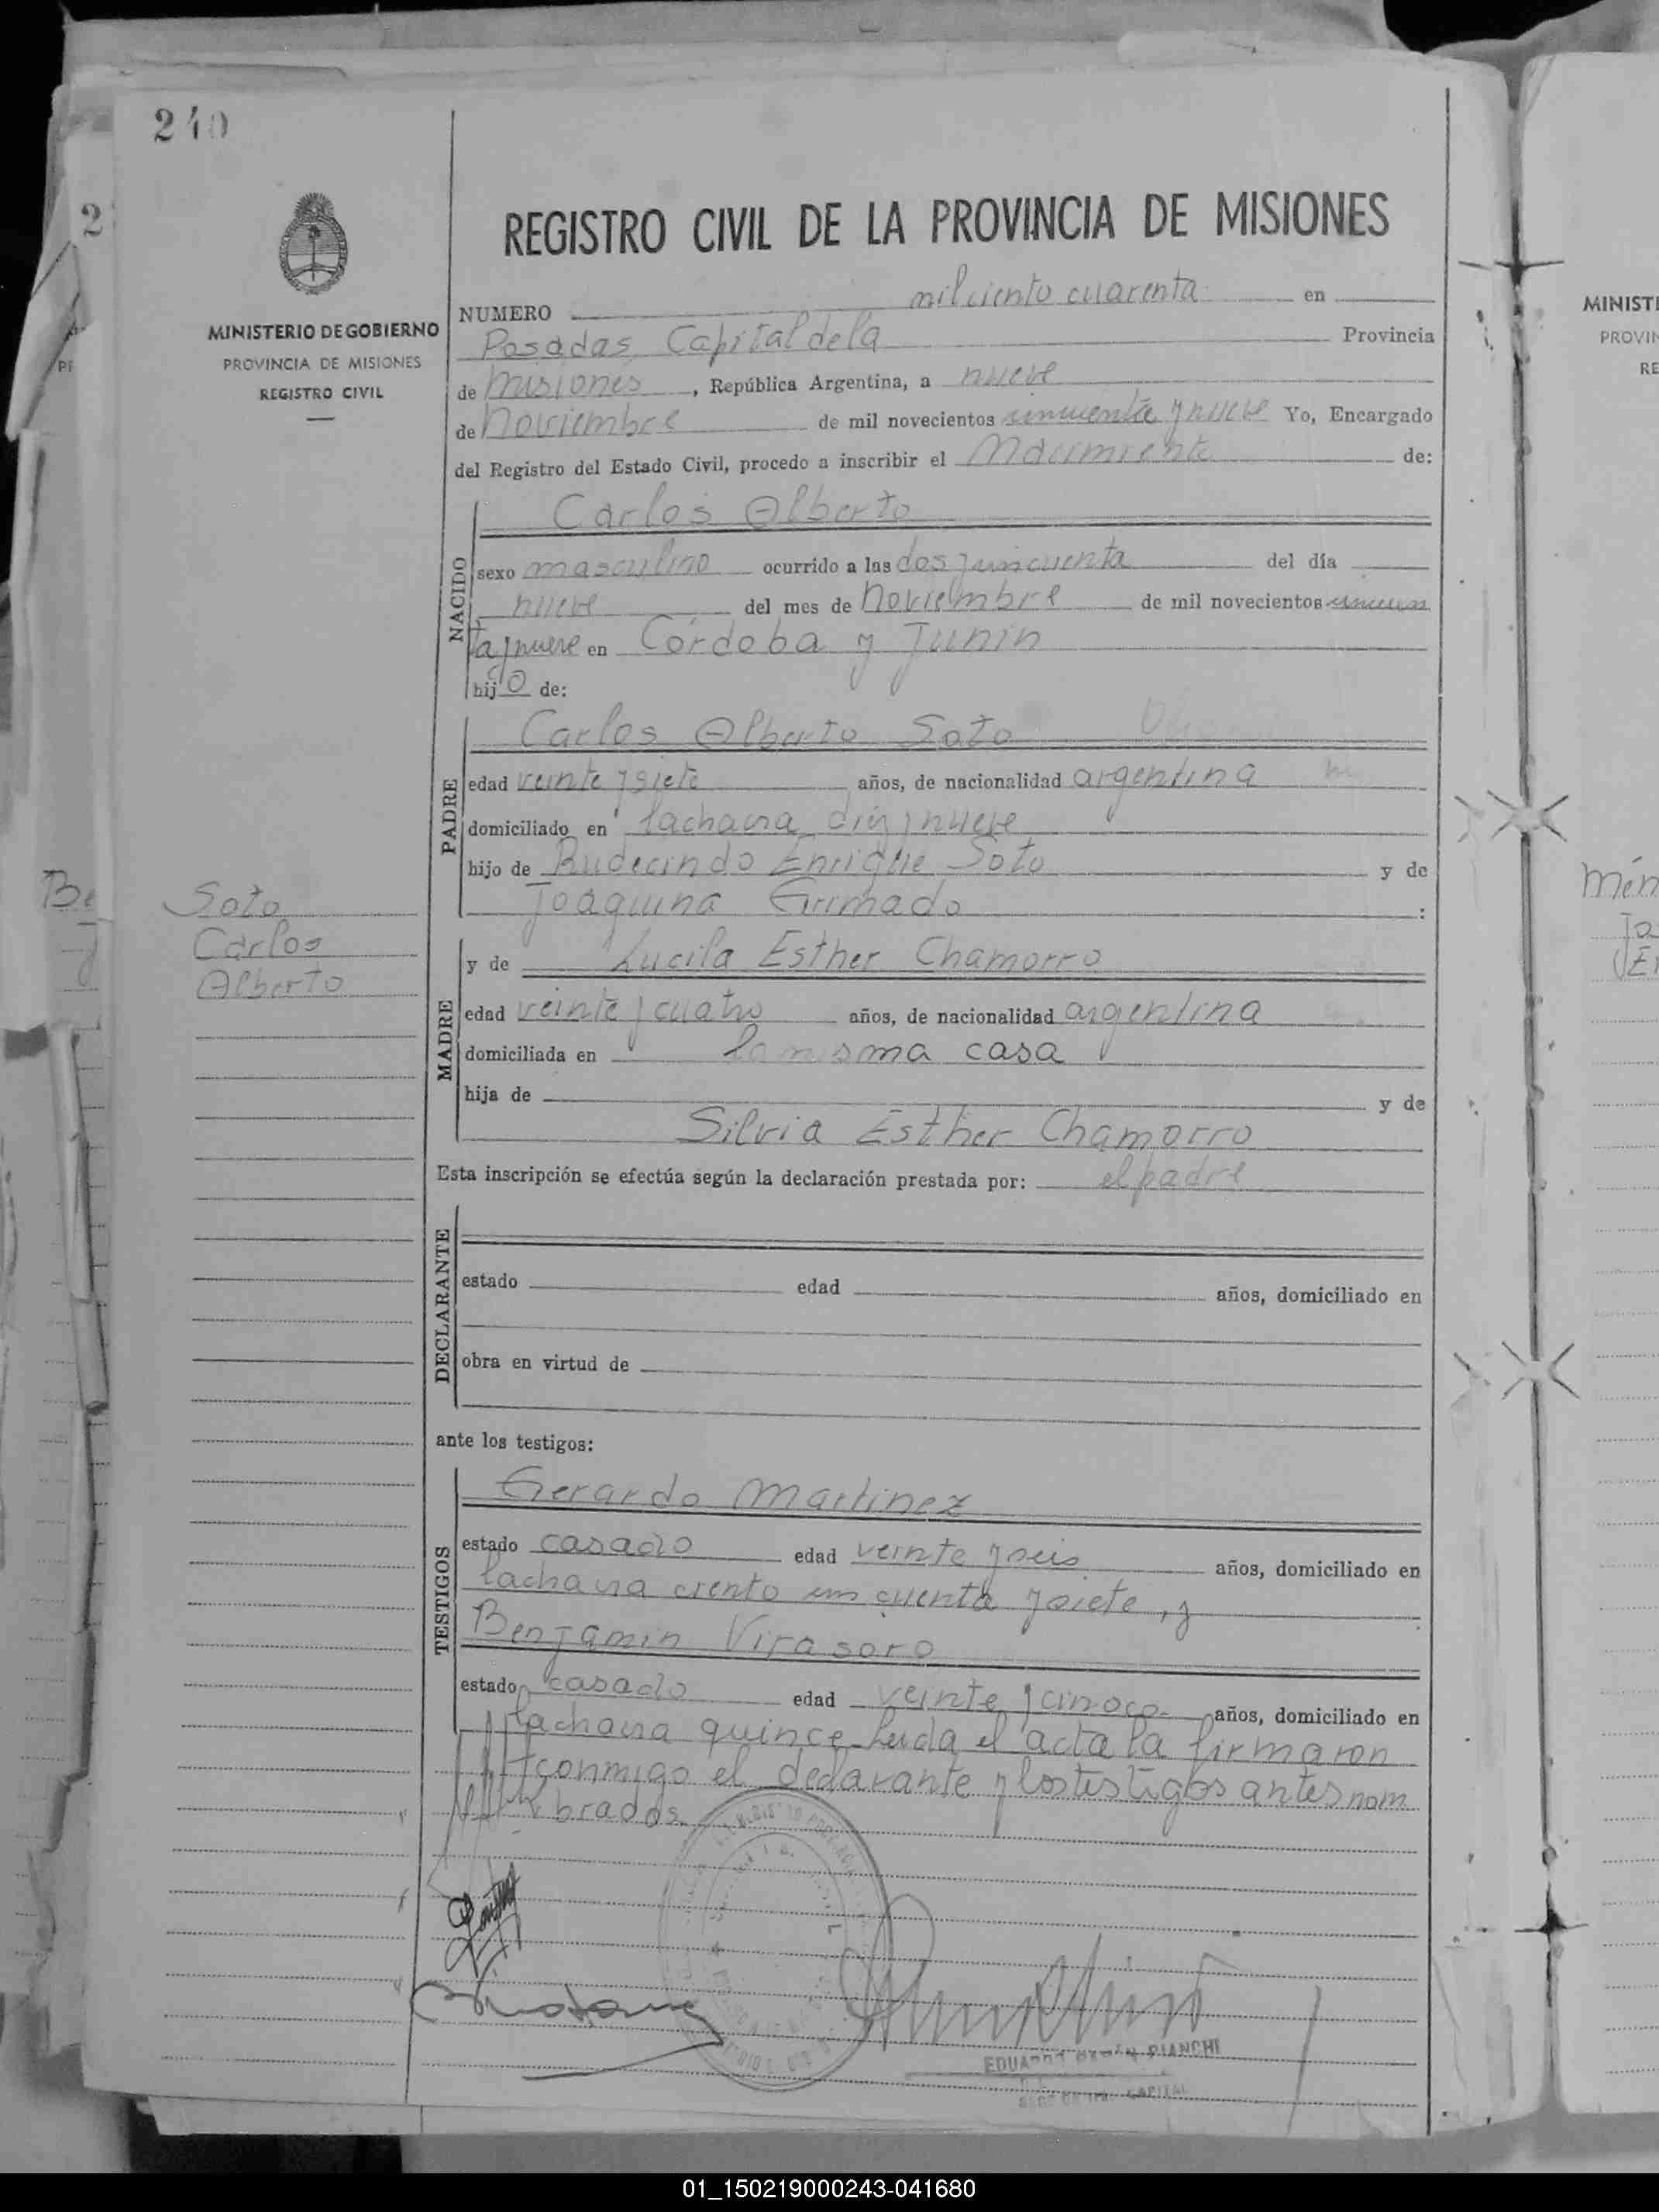 240
2
MINISTERIO DE GOBIERNO
PROVINCIA DE MISIONES
REGISTRO CIVIL
REGISTRO CIVIL DE LA PROVINCIA DE MISIONES
NUMERO mil ciento cuarenta en
Posadas, Capital de la Provincia
de Misiones, República Argentina, a nueve
de Noviembre de mil novecientos cincuenta y nueve Yo, Encargado
del Registro del Estado Civil, procedo a inscribir el Nacimiento de:
NACIDO
Carlos Alberto
sexo masculino ocurrido a las dos y cincuenta del día
nueve del mes de Noviembre de mil novecientos cincuen
ta y nueve en Córdoba y Junín
hijo de:
PADRE
Carlos Alberto Soto
edad veinte y siete años, de nacionalidad argentina
domiciliado en la chacra diez y nueve
hijo de Rudecindo Enrique Soto y de
Joaquina Grimado :
Soto
Carlos
Alberto
MADRE
y de Lucila Esther Chamorro
edad veinte y cuatro años, de nacionalidad argentina
domiciliada en la misma casa
hija de y de
Silvia Esther Chamorro
Esta inscripción se efectúa según la declaración prestada por: el padre
DECLARANTE
estado edad años, domiciliado en
obra en virtud de
ante los testigos:
TESTIGOS
Gerardo Martinez
estado casado edad veinte y seis años, domiciliado en
la chacra ciento cincuenta y siete, y
Benjamin Virasoro
estado casado edad veinte y cinco años, domiciliado en
la chacra quince. Leida el acta la firmaron
conmigo el declarante y los testigos antes nom
brados.
EDUARDO BIANCHI
CAPITAL
MINIST
PROVIN
RE
01_150219000243-041680